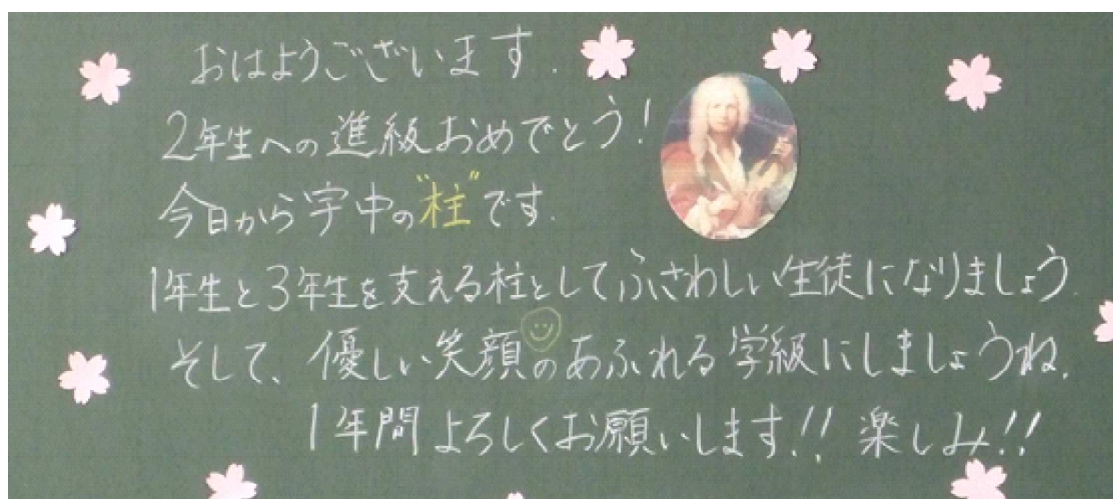 おはようございます.
2年生への進級おめでとう!
今日から宇中の"柱"です.
1年生と3年生を支える柱としてふさわしい生徒になりましょう.
そして、優しい笑顔のあふれる学級にしましょうね.
1年間よろしくお願いします!! 楽しみ!!